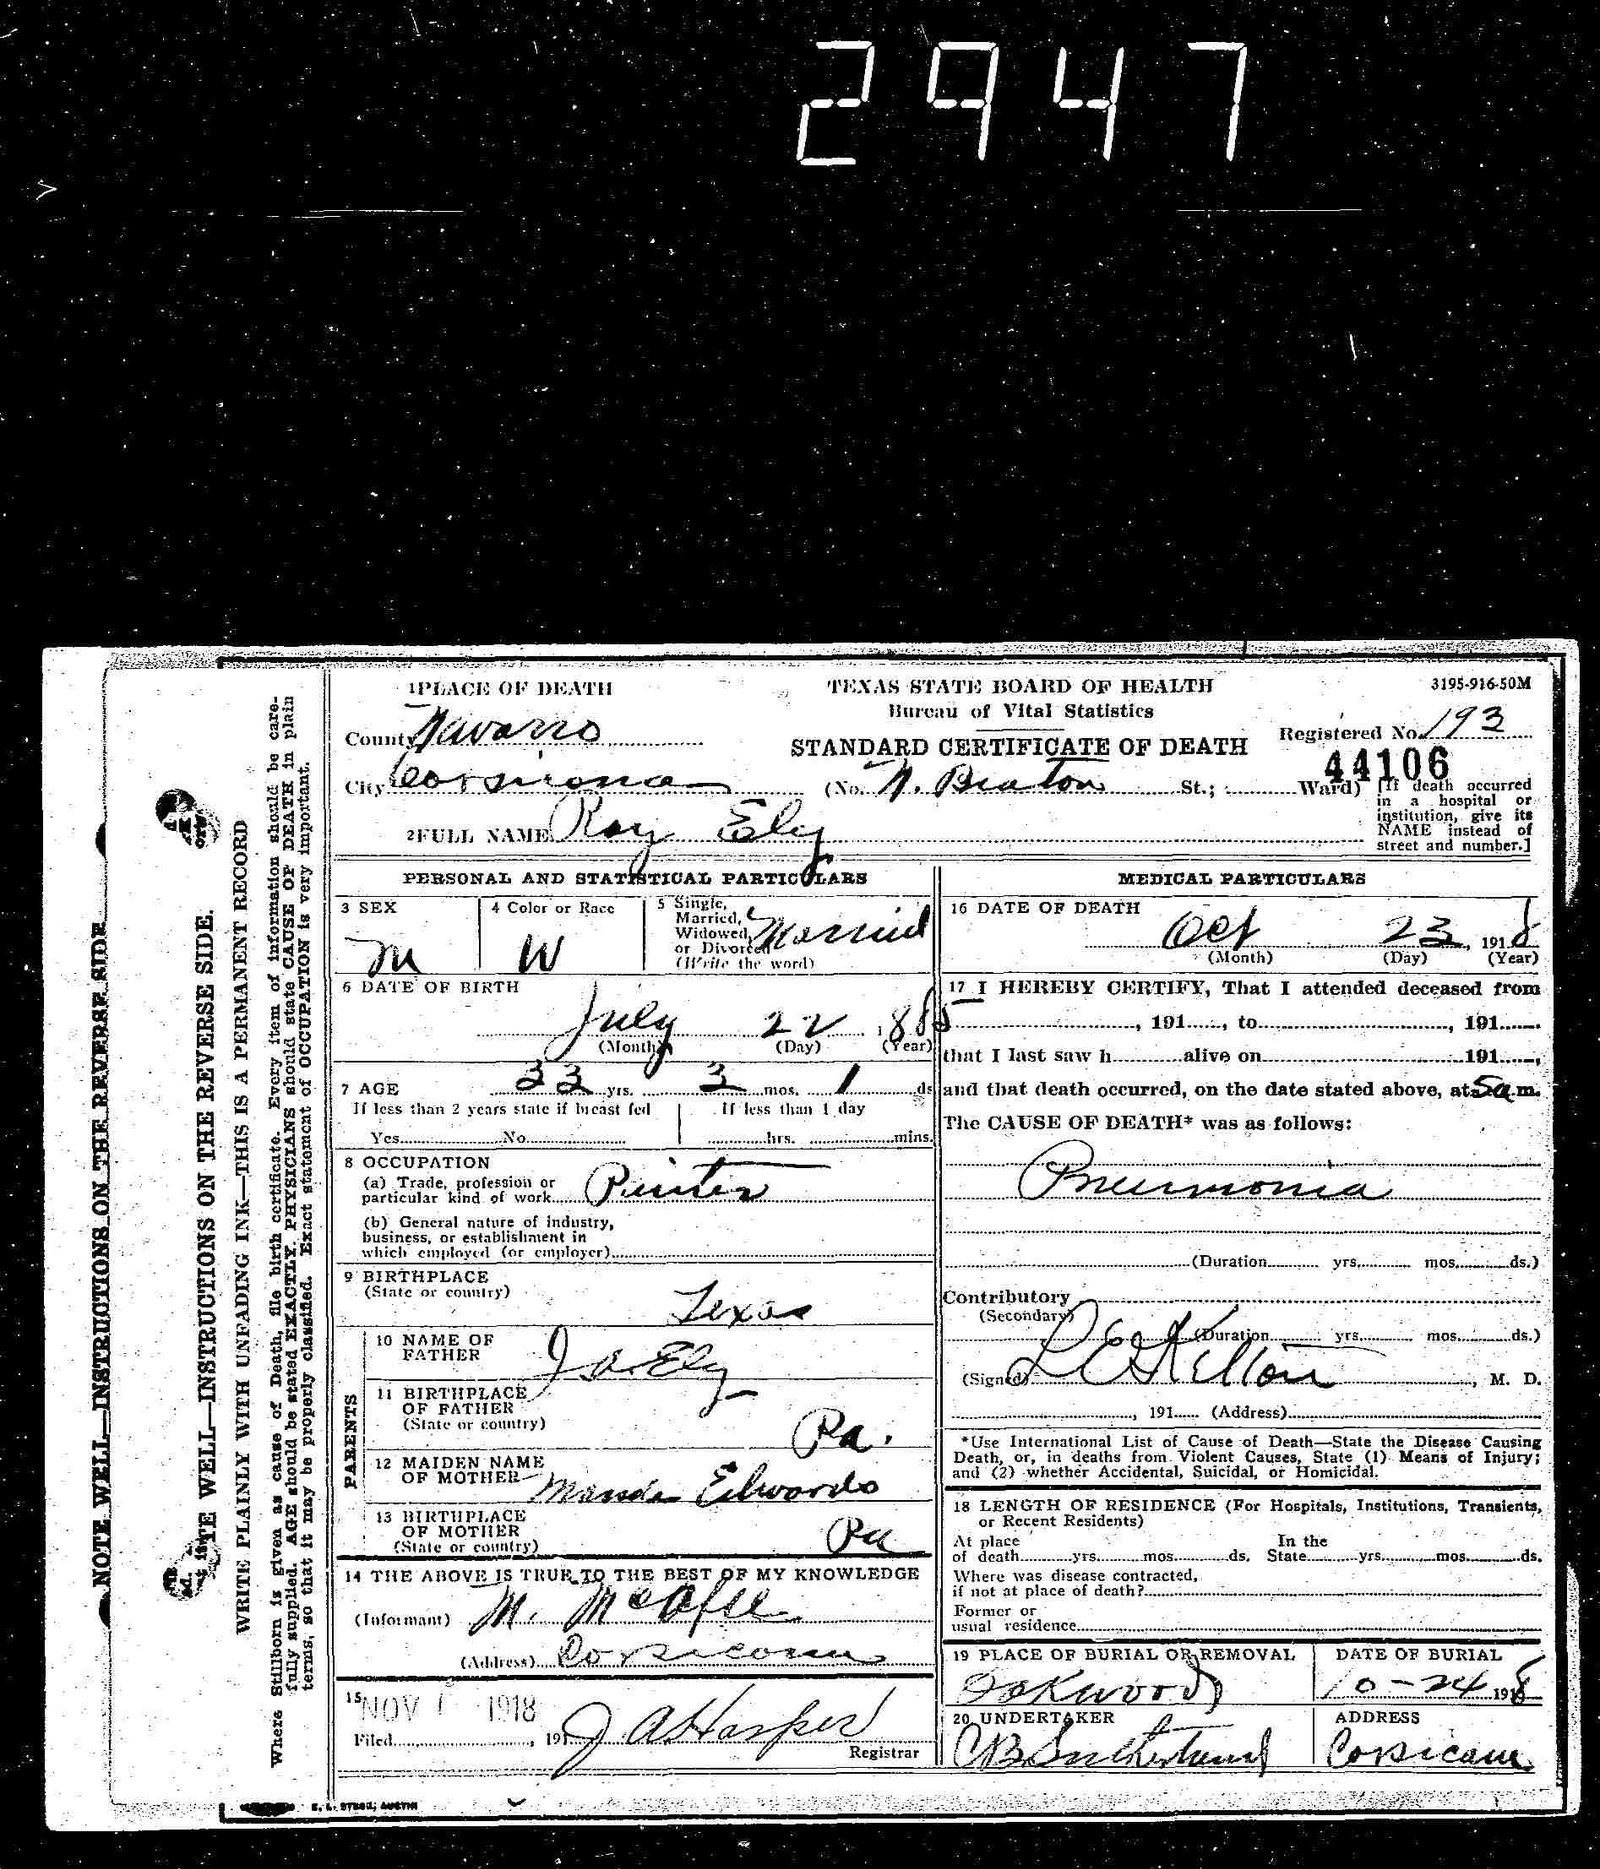 2947
1 PLACE OF DEATH
TEXAS STATE BOARD OF HEALTH
3195-916-50M
Bureau of Vital Statistics
County Navarro
Registered No. 193
STANDARD CERTIFICATE OF DEATH
44106
City Corsicana (No. N. Beaton St.; Ward)
[If death occurred
in a hospital or
institution, give its
NAME instead of
street and number.]
2 FULL NAME Roy Ely
PERSONAL AND STATISTICAL PARTICULARS
3 SEX
M
4 Color or Race
W
5 Single,
Married,
Widowed,
or Divorced
(Write the word)
Married
6 DATE OF BIRTH
July 22, 1885
(Month) (Day) (Year)
7 AGE 33 yrs. 3 mos. 1 ds
If less than 2 years state if breast fed
Yes No
If less than 1 day
hrs. mins.
8 OCCUPATION
(a) Trade, profession or
particular kind of work
(b) General nature of industry,
business, or establishment in
which employed (or employer)
9 BIRTHPLACE
(State or country)
Texas
PARENTS
10 NAME OF
FATHER
Ely
11 BIRTHPLACE
OF FATHER
(State or country)
Pa.
12 MAIDEN NAME
OF MOTHER
Edwards
13 BIRTHPLACE
OF MOTHER
(State or country)
Pa
14 THE ABOVE IS TRUE TO THE BEST OF MY KNOWLEDGE
(Informant) M. McAfee
(Address) Corsicana
15
NOV 1918
Filed, 191 J A Harper
Registrar
MEDICAL PARTICULARS
16 DATE OF DEATH
Oct 23, 1918
(Month) (Day) (Year)
17 I HEREBY CERTIFY, That I attended deceased from
, 191 , to , 191
that I last saw h alive on 191 ,
and that death occurred, on the date stated above, at 5 a m.
The CAUSE OF DEATH* was as follows:
Pneumonia
(Duration yrs. mos. ds.)
Contributory
(Secondary)
(Duration yrs. mos. ds.)
(Signed) Kelton, M. D.
, 191 (Address)
*Use International List of Cause of Death—State the Disease Causing
Death, or, in deaths from Violent Causes, State (1) Means of Injury;
and (2) whether Accidental, Suicidal, or Homicidal.
18 LENGTH OF RESIDENCE (For Hospitals, Institutions, Transients,
or Recent Residents)
At place In the
of death yrs. mos. ds. State yrs. mos. ds.
Where was disease contracted,
if not at place of death?
Former or
usual residence
19 PLACE OF BURIAL OR REMOVAL
Oakwood
DATE OF BURIAL
10-24 1918
20 UNDERTAKER
C B Sutherland
ADDRESS
Corsicana
NOTE WELL—INSTRUCTIONS ON THE REVERSE SIDE
TE WELL—INSTRUCTIONS ON THE REVERSE SIDE.
WRITE PLAINLY WITH UNFADING INK—THIS IS A PERMANENT RECORD
Where Stillborn is given as cause of Death, file birth certificate. Every item of information should be care-
fully supplied. AGE should be stated EXACTLY. PHYSICIANS should state CAUSE OF DEATH in plain
terms, so that it may be properly classified. Exact statement of OCCUPATION is very important.